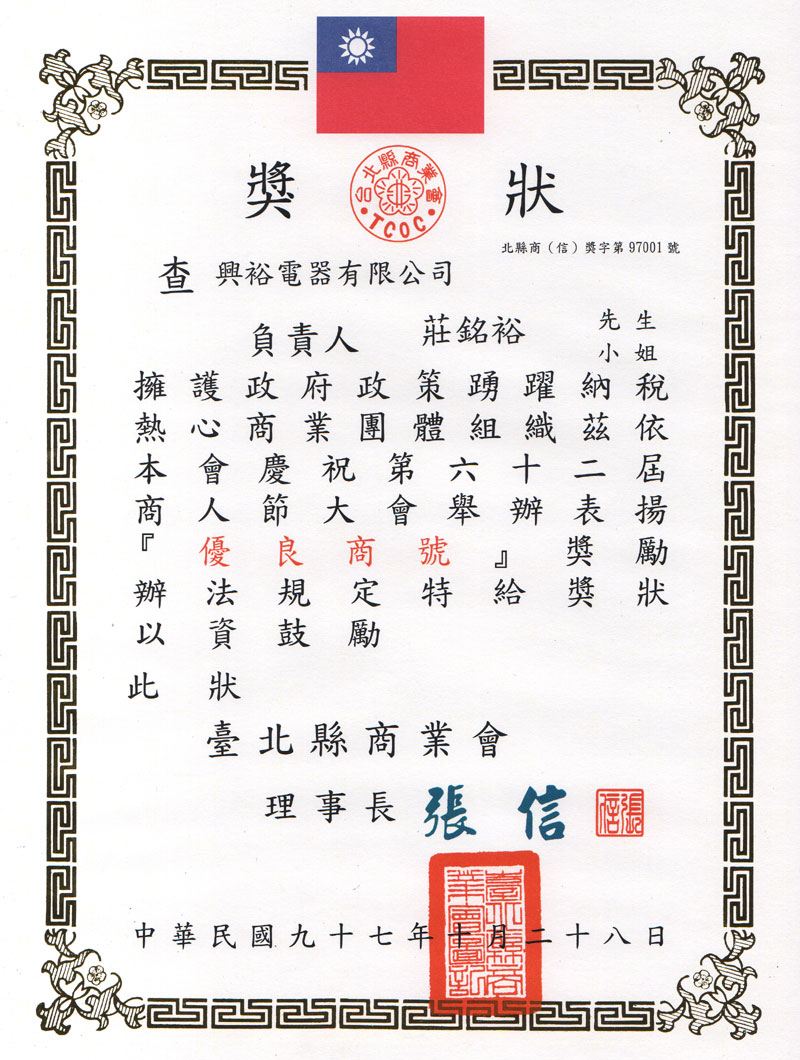 獎狀
台北縣商業會
TCOC
北縣商（信）獎字第97001號
查 興裕電器有限公司
負責人 莊銘裕 先生
小姐
擁護政府政策踴躍納稅
熱心商業團體組織茲依
本會慶祝第六十二屆
商人節大會舉辦表揚
『優良商號』獎勵
辦法規定特給獎狀
以資鼓勵
此狀
臺北縣商業會
理事長 張信
張信
中華民國九十七年十月二十八日